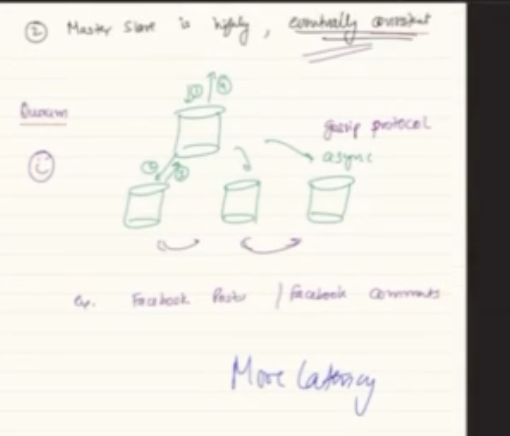 ② Master Slave is highly, eventually consistent
① ④
Quorum
gossip protocol
② ③
async
eg. Facebook Posts / Facebook comments
More latency